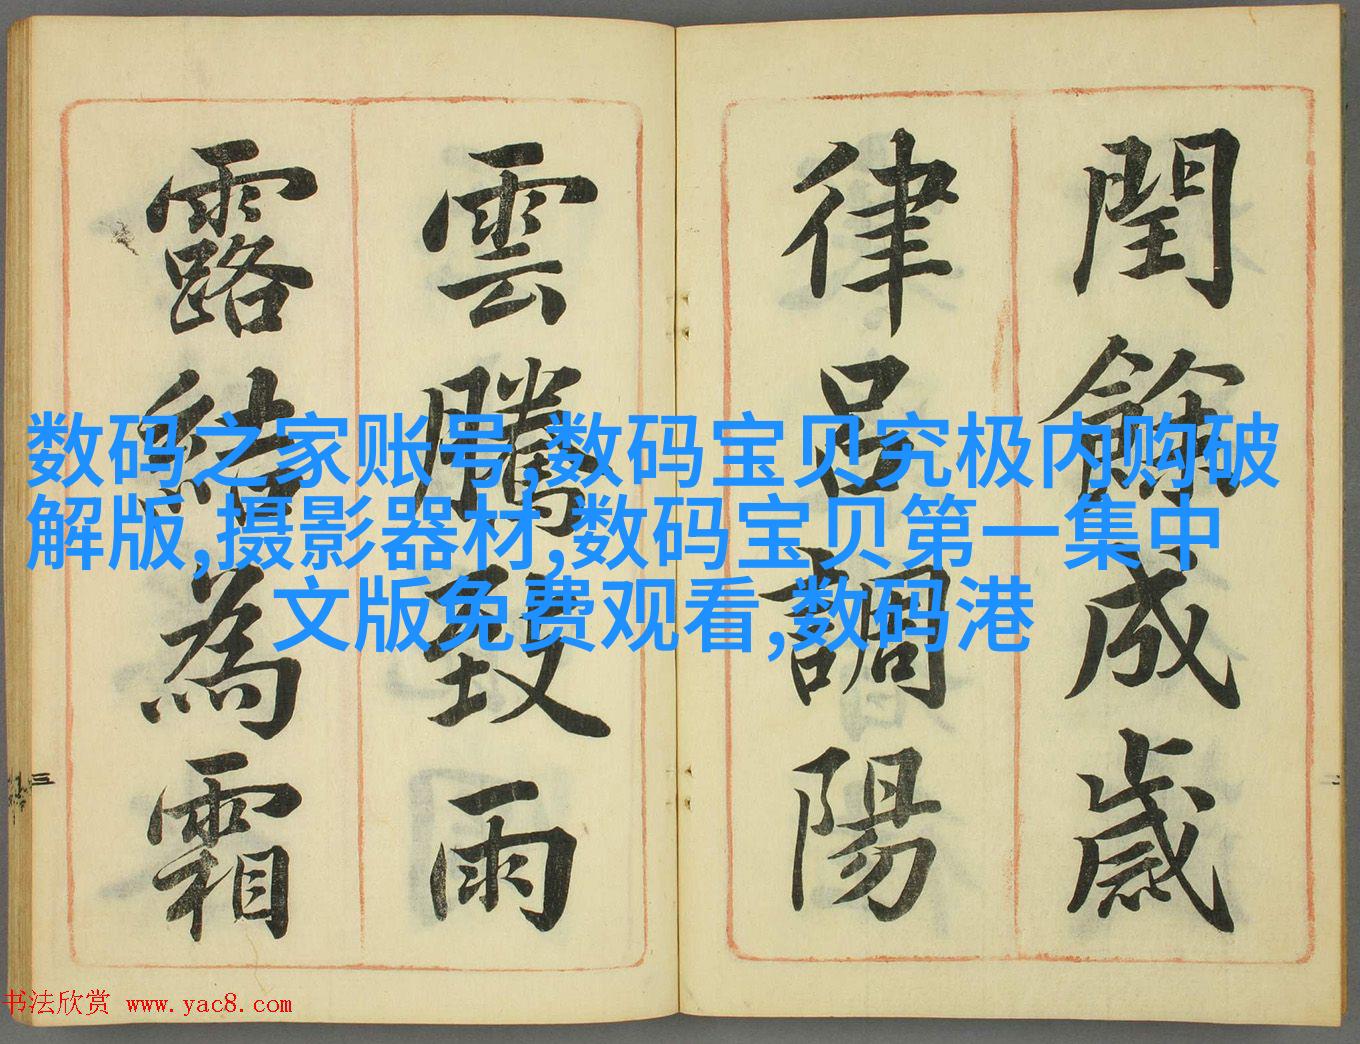 閏餘成歲
律呂調陽
雲騰致雨
露結為霜
数码之家账号,数码宝贝究极内购破
解版,摄影器材,数码宝贝第一集中
文版免费观看,数码港
二
三
书法欣赏 www.yac8.com